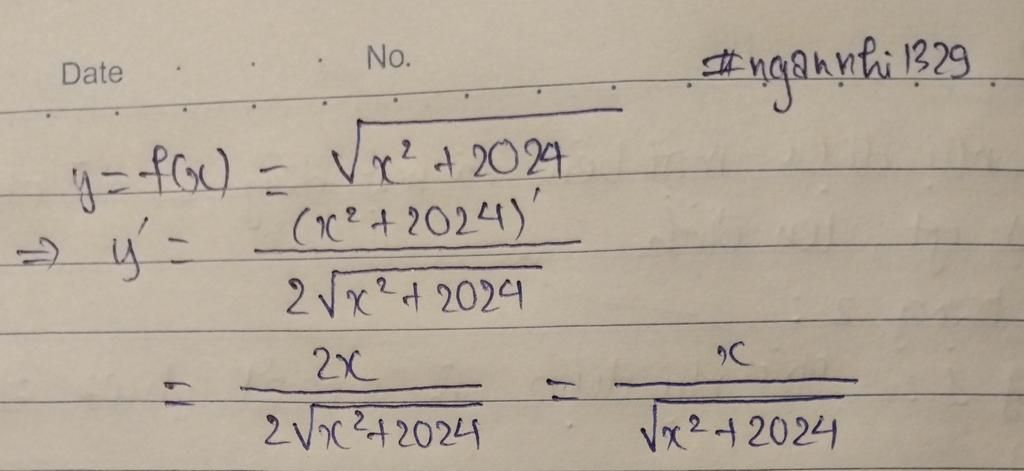 Date No. #ngannhi1329
y = f(x) = √(x² + 2024)
⇒ y' = (x² + 2024)' / 2√(x² + 2024)
= 2x / 2√(x² + 2024) = x / √(x² + 2024)